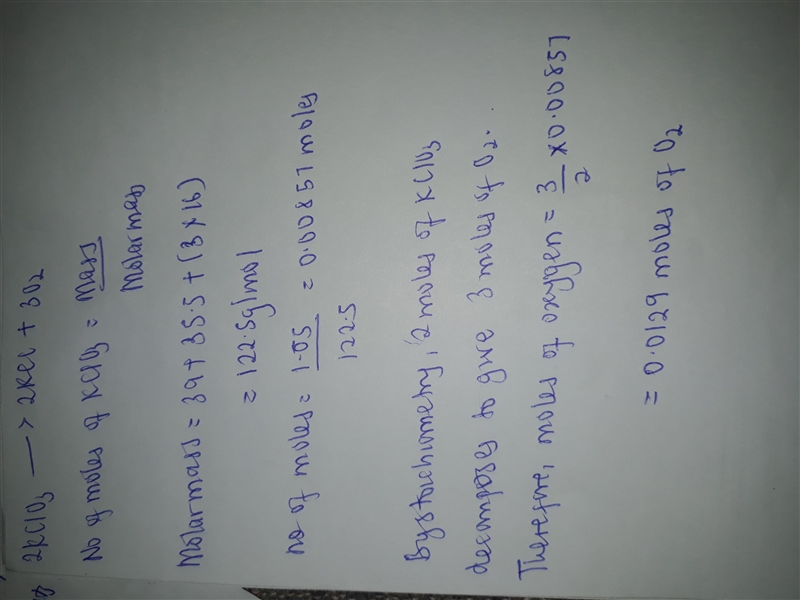 2KClO3 —> 2KCl + 3O2
No of moles of KClO3 = Mass
Molarmass
Molarmass = 39 + 35.5 + (3 × 16)
= 122.5g/mol
no of moles = 1.05 = 0.00857 moles
122.5
By stoichiometry, 2 moles of KClO3
decompose to give 3 moles of O2.
Therefore, moles of oxygen = 3 × 0.00857
2
= 0.0129 moles of O2